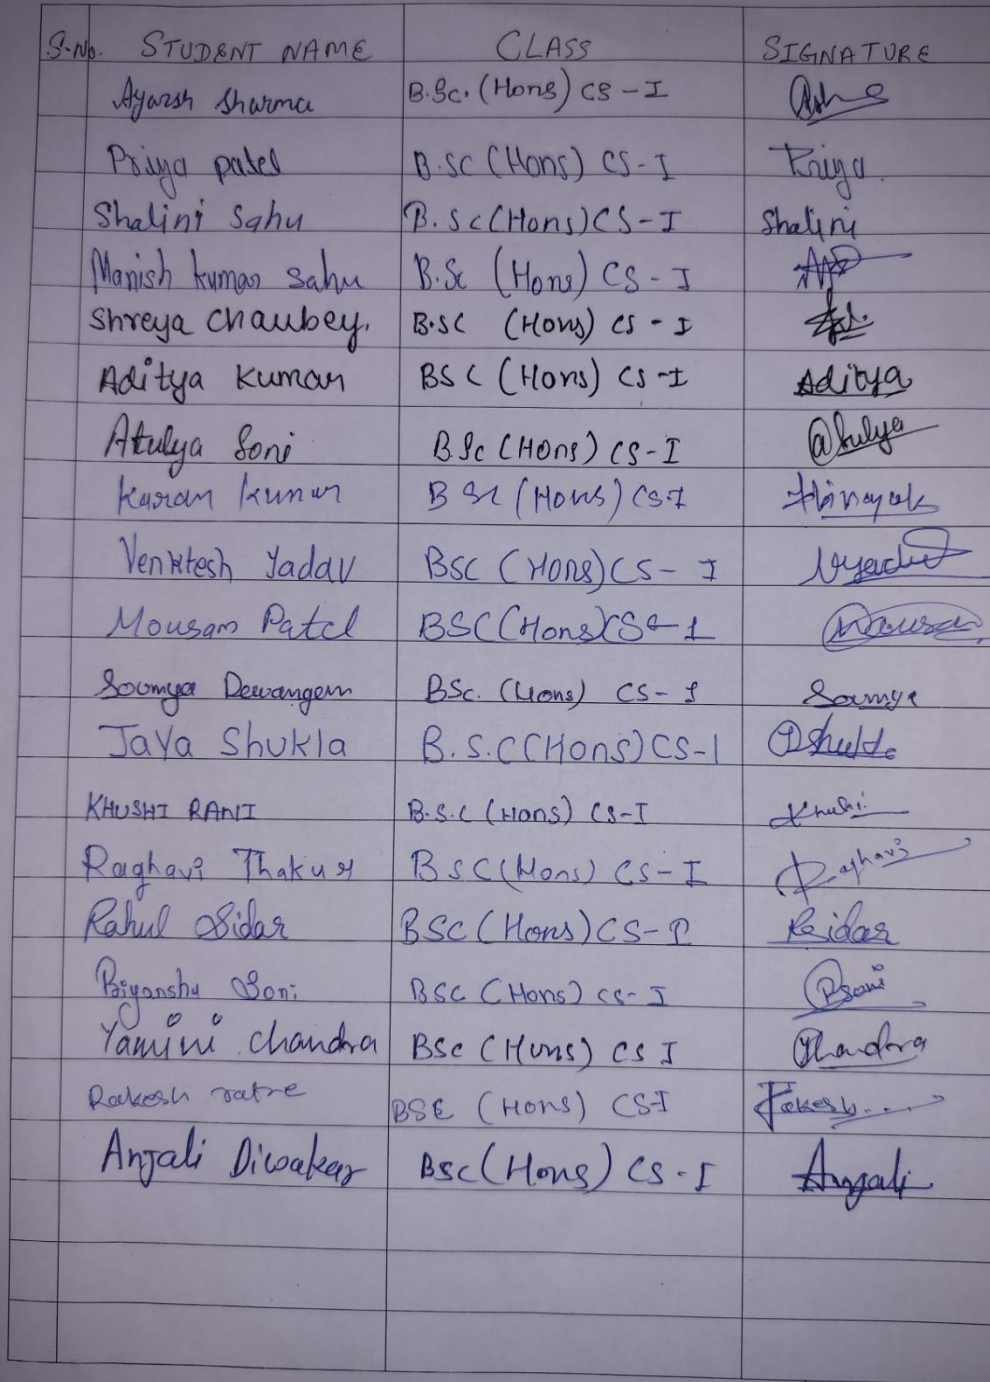 S.No. STUDENT NAME CLASS SIGNATURE
Ayarsh Sharma B.Sc. (Hons) CS - I
Priya patel B.SC (Hons) CS - I Priya
Shalini Sahu B. Sc (Hons) CS - I Shalini
Manish kumar Sahu B.Sc (Hons) CS - I
Shreya Chaubey. B.SC (Hons) CS - I
Aditya Kumar BSC (Hons) CS - I Aditya
Atulya Soni B.Sc (Hons) CS - I Atulya
Karan kumar B Sc (Hons) CS-I
Venktesh Yadav BSC (Hons) CS - I Vyadav
Mousam Patel BSC (Hons) CS - 1 Mousam
Soumya Dewangan BSc. (Hons) CS - I Soumya
JaYa Shukla B.S.C (Hons) CS-1 Shukla
KHUSHI RANI B.S.C (Hons) CS-I Khushi
Raghavi Thakur BSC (Hons) CS - I Raghavi
Rahul Sidar BSC (Hons) CS - I RSidar
Priyanshu Soni BSC (Hons) CS - I PSoni
Yamini chandra BSc (Hons) CS I Ychandra
Rakesh ratre BSC (Hons) CS-I Rakesh
Anjali Diwakar BSc (Hons) CS - I Anjali